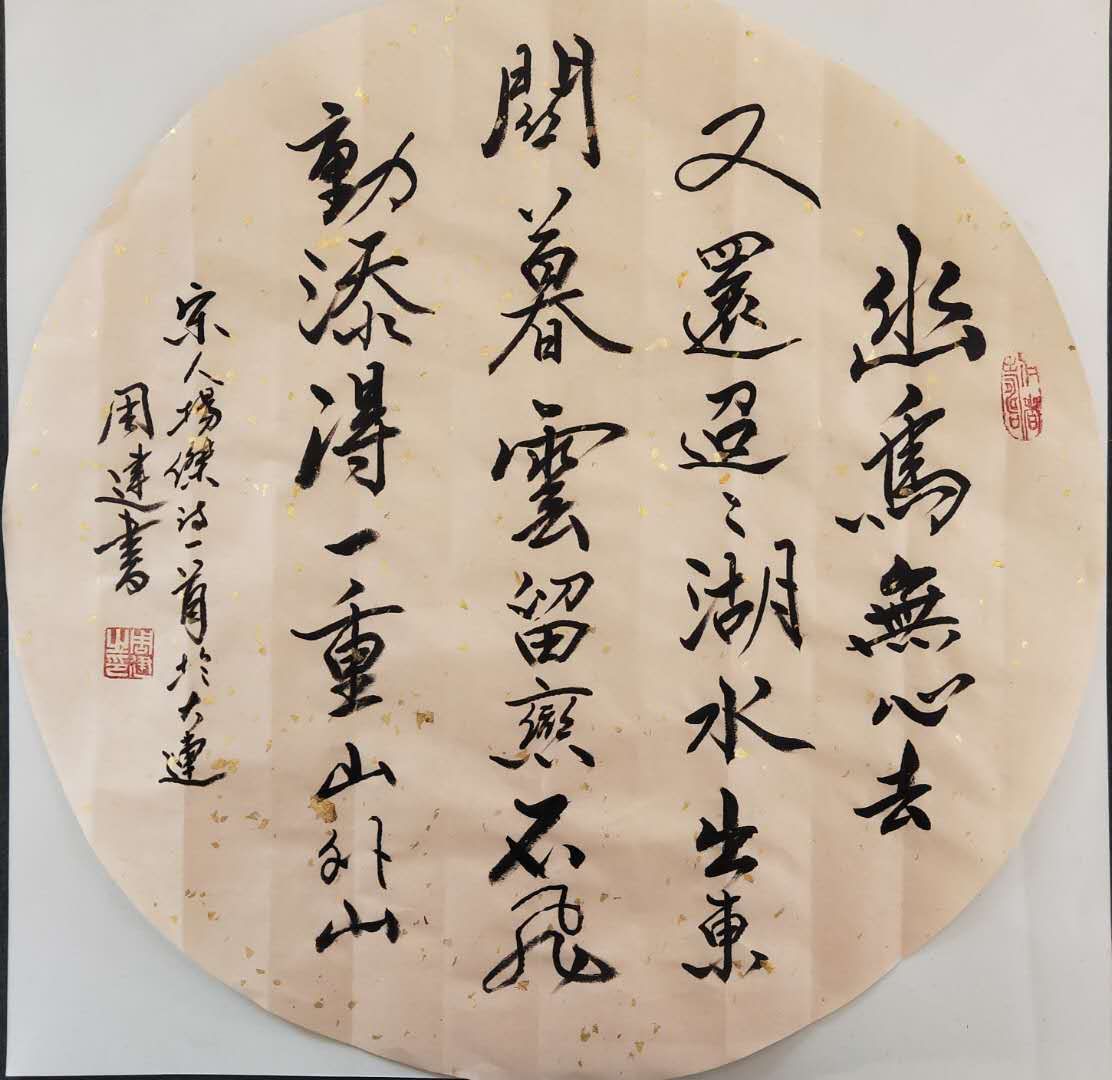 幽鳥無心去
又還迢〻湖水出東
關暮雲留戀不飛
動添得一重山外山
宋人楊傑詩一首於大連
周達書